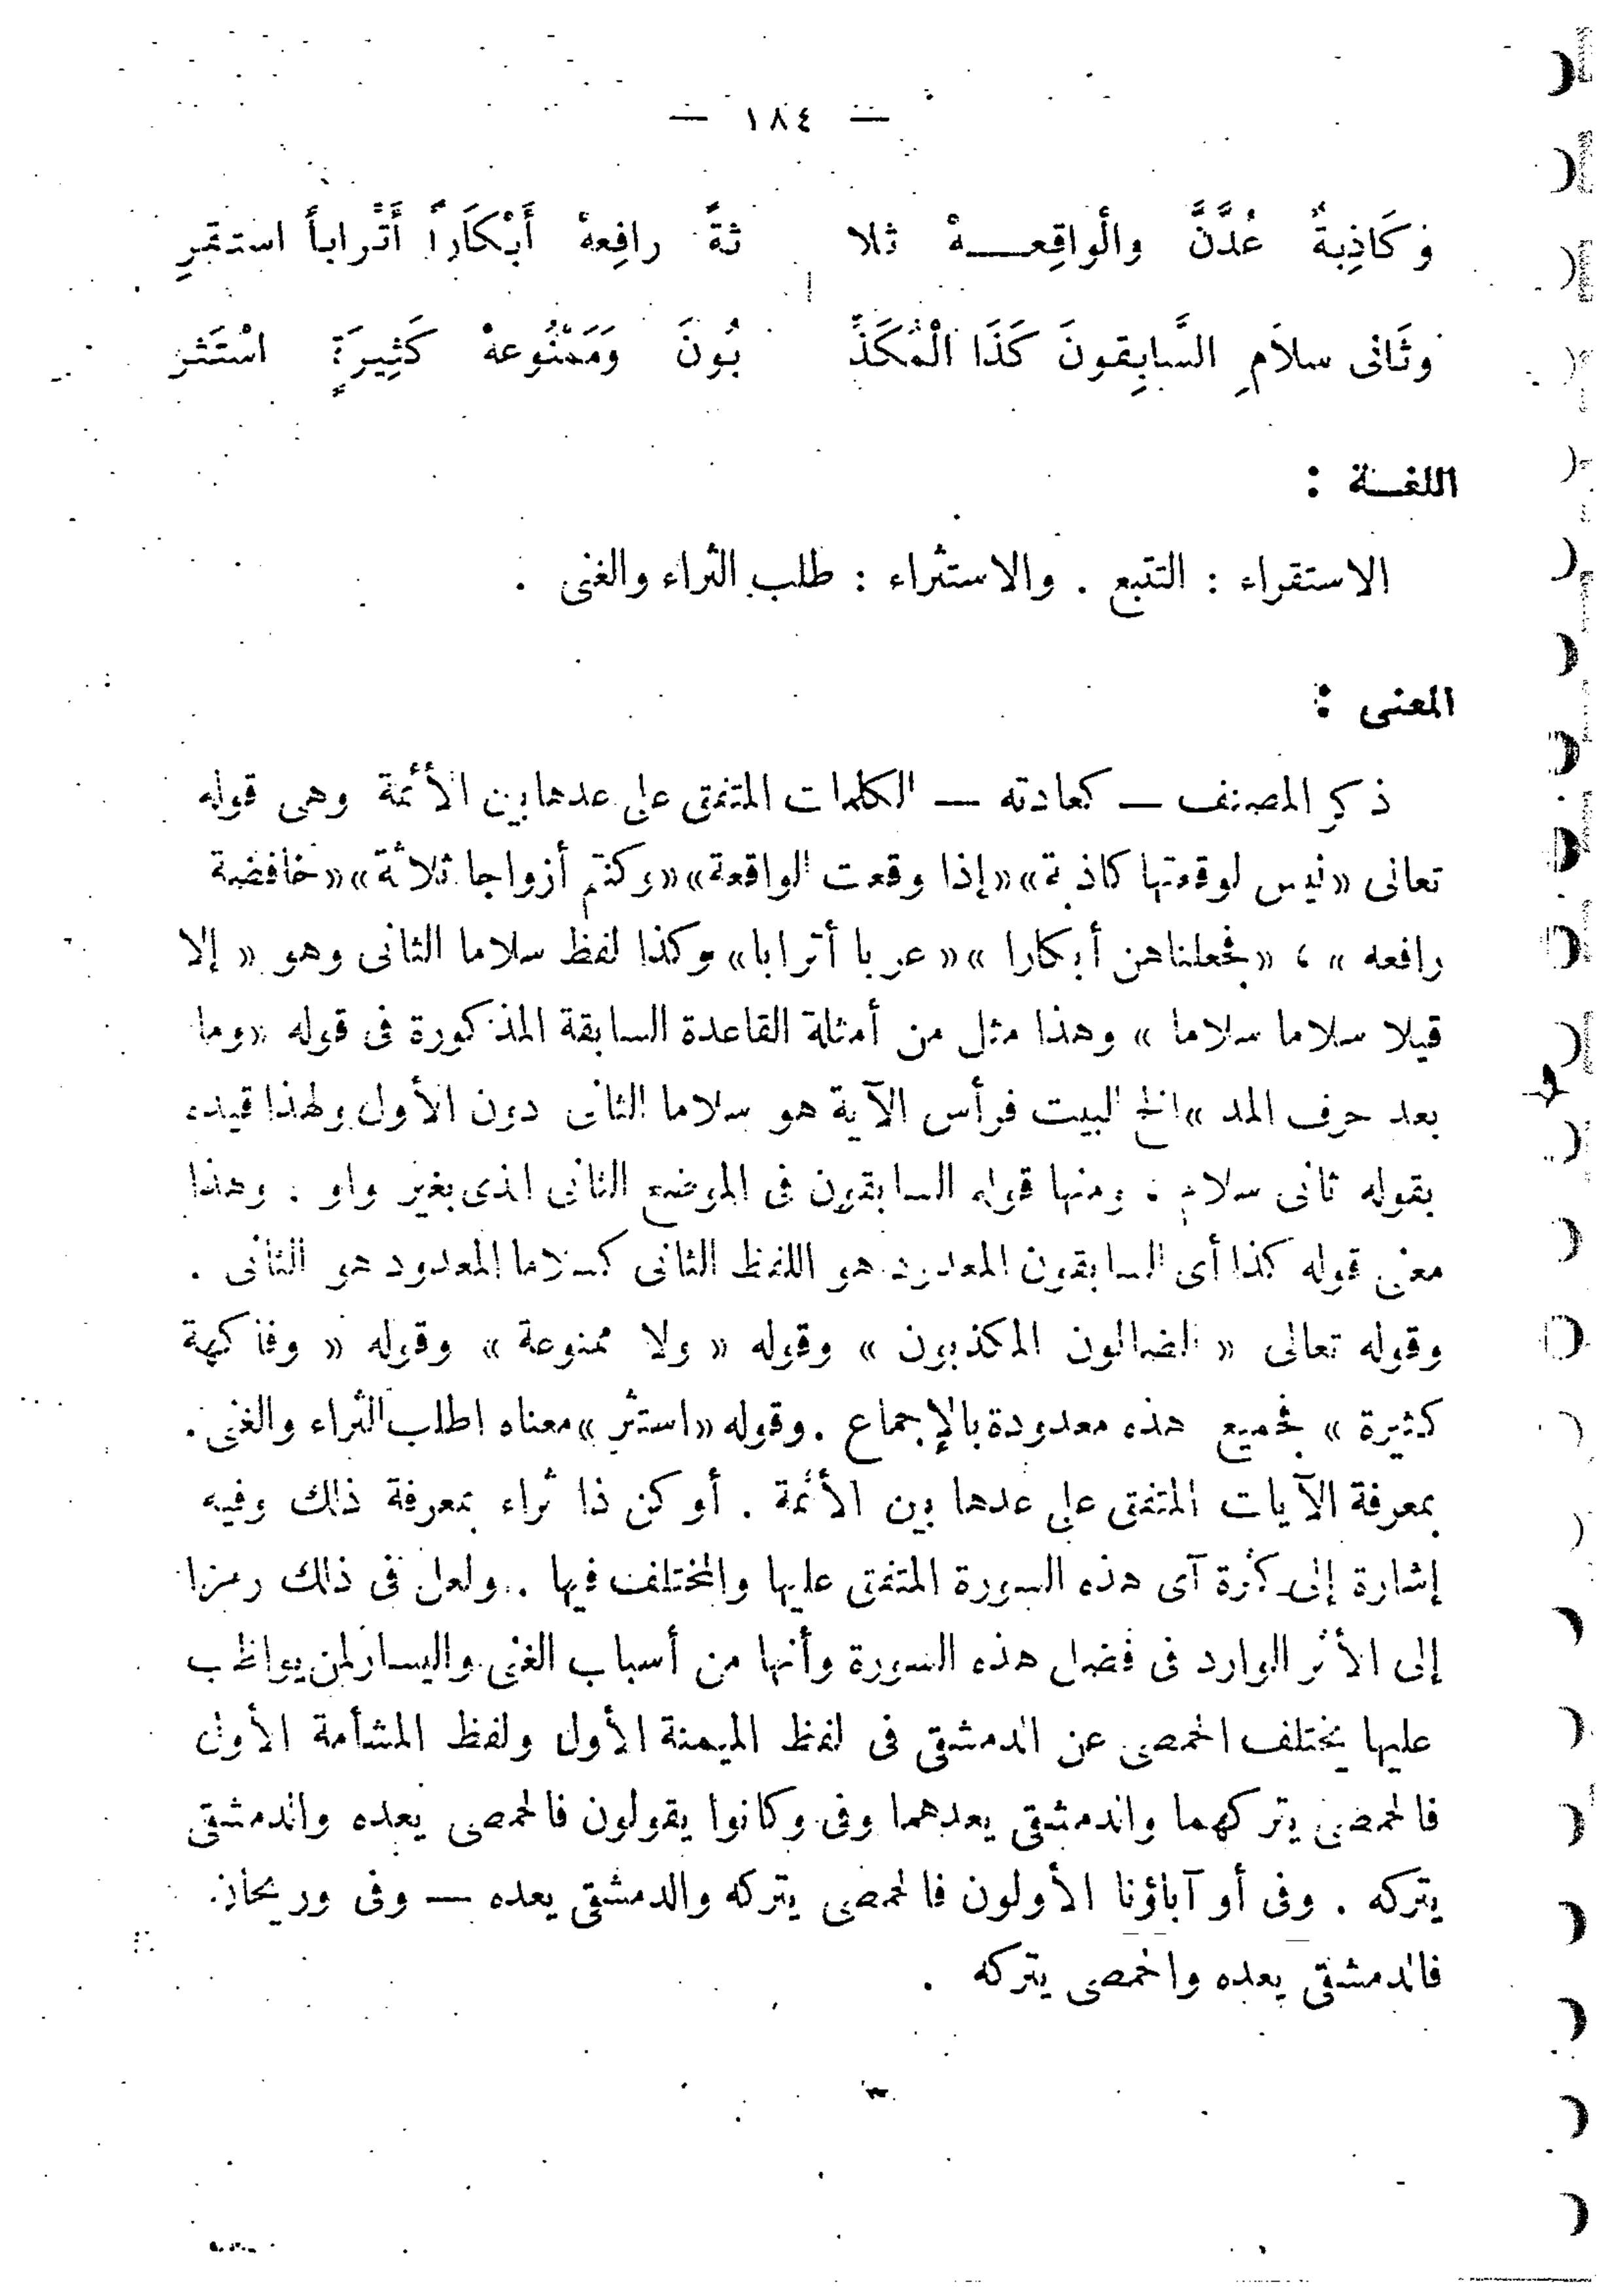 — ١٨٤ —
وَكَاذِبةٌ عُدَّنَّ والْواقِعـــهْ ثلا ثةً رافِعهْ أَبْكَاراً أَتْراباً استقرِ
وثَانى سلاَمٍ السَّابِقونَ كَذَا الْمُكَذِّ بُونَ وَمَمْنُوعهْ كَثِيرَةٍ اسْتَثر
اللغــة :
الاستقراء : التتبع . والاستثراء : طلب الثراء والغنى .
المعنى :
ذكر المصنف — كعادته — الكلمات المتفق على عدها بين الأئمة وهى قوله
تعالى «ليس لوقعتها كاذبة» «إذا وقعت الواقعة» «وكنتم أزواجا ثلاثة» «خافضة
رافعه » ، «فجعلناهن أبكارا » « عربا أترابا» وكذا لفظ سلاما الثانى وهو « إلا
قيلا سلاما سلاما » وهذا مثل من أمثلة القاعدة السابقة المذكورة فى قوله «وما
بعد حرف المد »الخ البيت فرأس الآية هو سلاما الثانى دون الأول ولهذا قيده
بقوله ثانى سلام . ومنها قوله السابقون فى الموضع الثانى الذى بغير واو . وهذا
معنى قوله كذا أى السابقون المعدود هو اللفظ الثانى كسلاما المعدود هو الثانى .
وقوله تعالى « الضالون المكذبون » وقوله « ولا ممنوعة » وقوله « وفاكهة
كثيرة » فجميع هذه معدودة بالإجماع . وقوله «استثر » معناه اطلب الثراء والغنى .
بمعرفة الآيات المتفق على عدها بين الأئمة . أو كن ذا ثراء بمعرفة ذلك وفيه
إشارة إلى كثرة آى هذه السورة المتفق عليها والمختلف فيها . ولعل فى ذلك رمزا
إلى الأثر الوارد فى فضل هذه السورة وأنها من أسباب الغنى واليسار لمن يواظب
عليها يختلف الحمصى عن الدمشقى فى لفظ الميمنة الأول ولفظ المشأمة الأول
فالحمصى يتركهما والدمشقى يعدهما وفى وكانوا يقولون فالحمصى يعده والدمشقى
يتركه . وفى أو آباؤنا الأولون فالحمصى يتركه والدمشقى يعده — وفى وريحان
فالدمشقى يعده والحمصى يتركه .